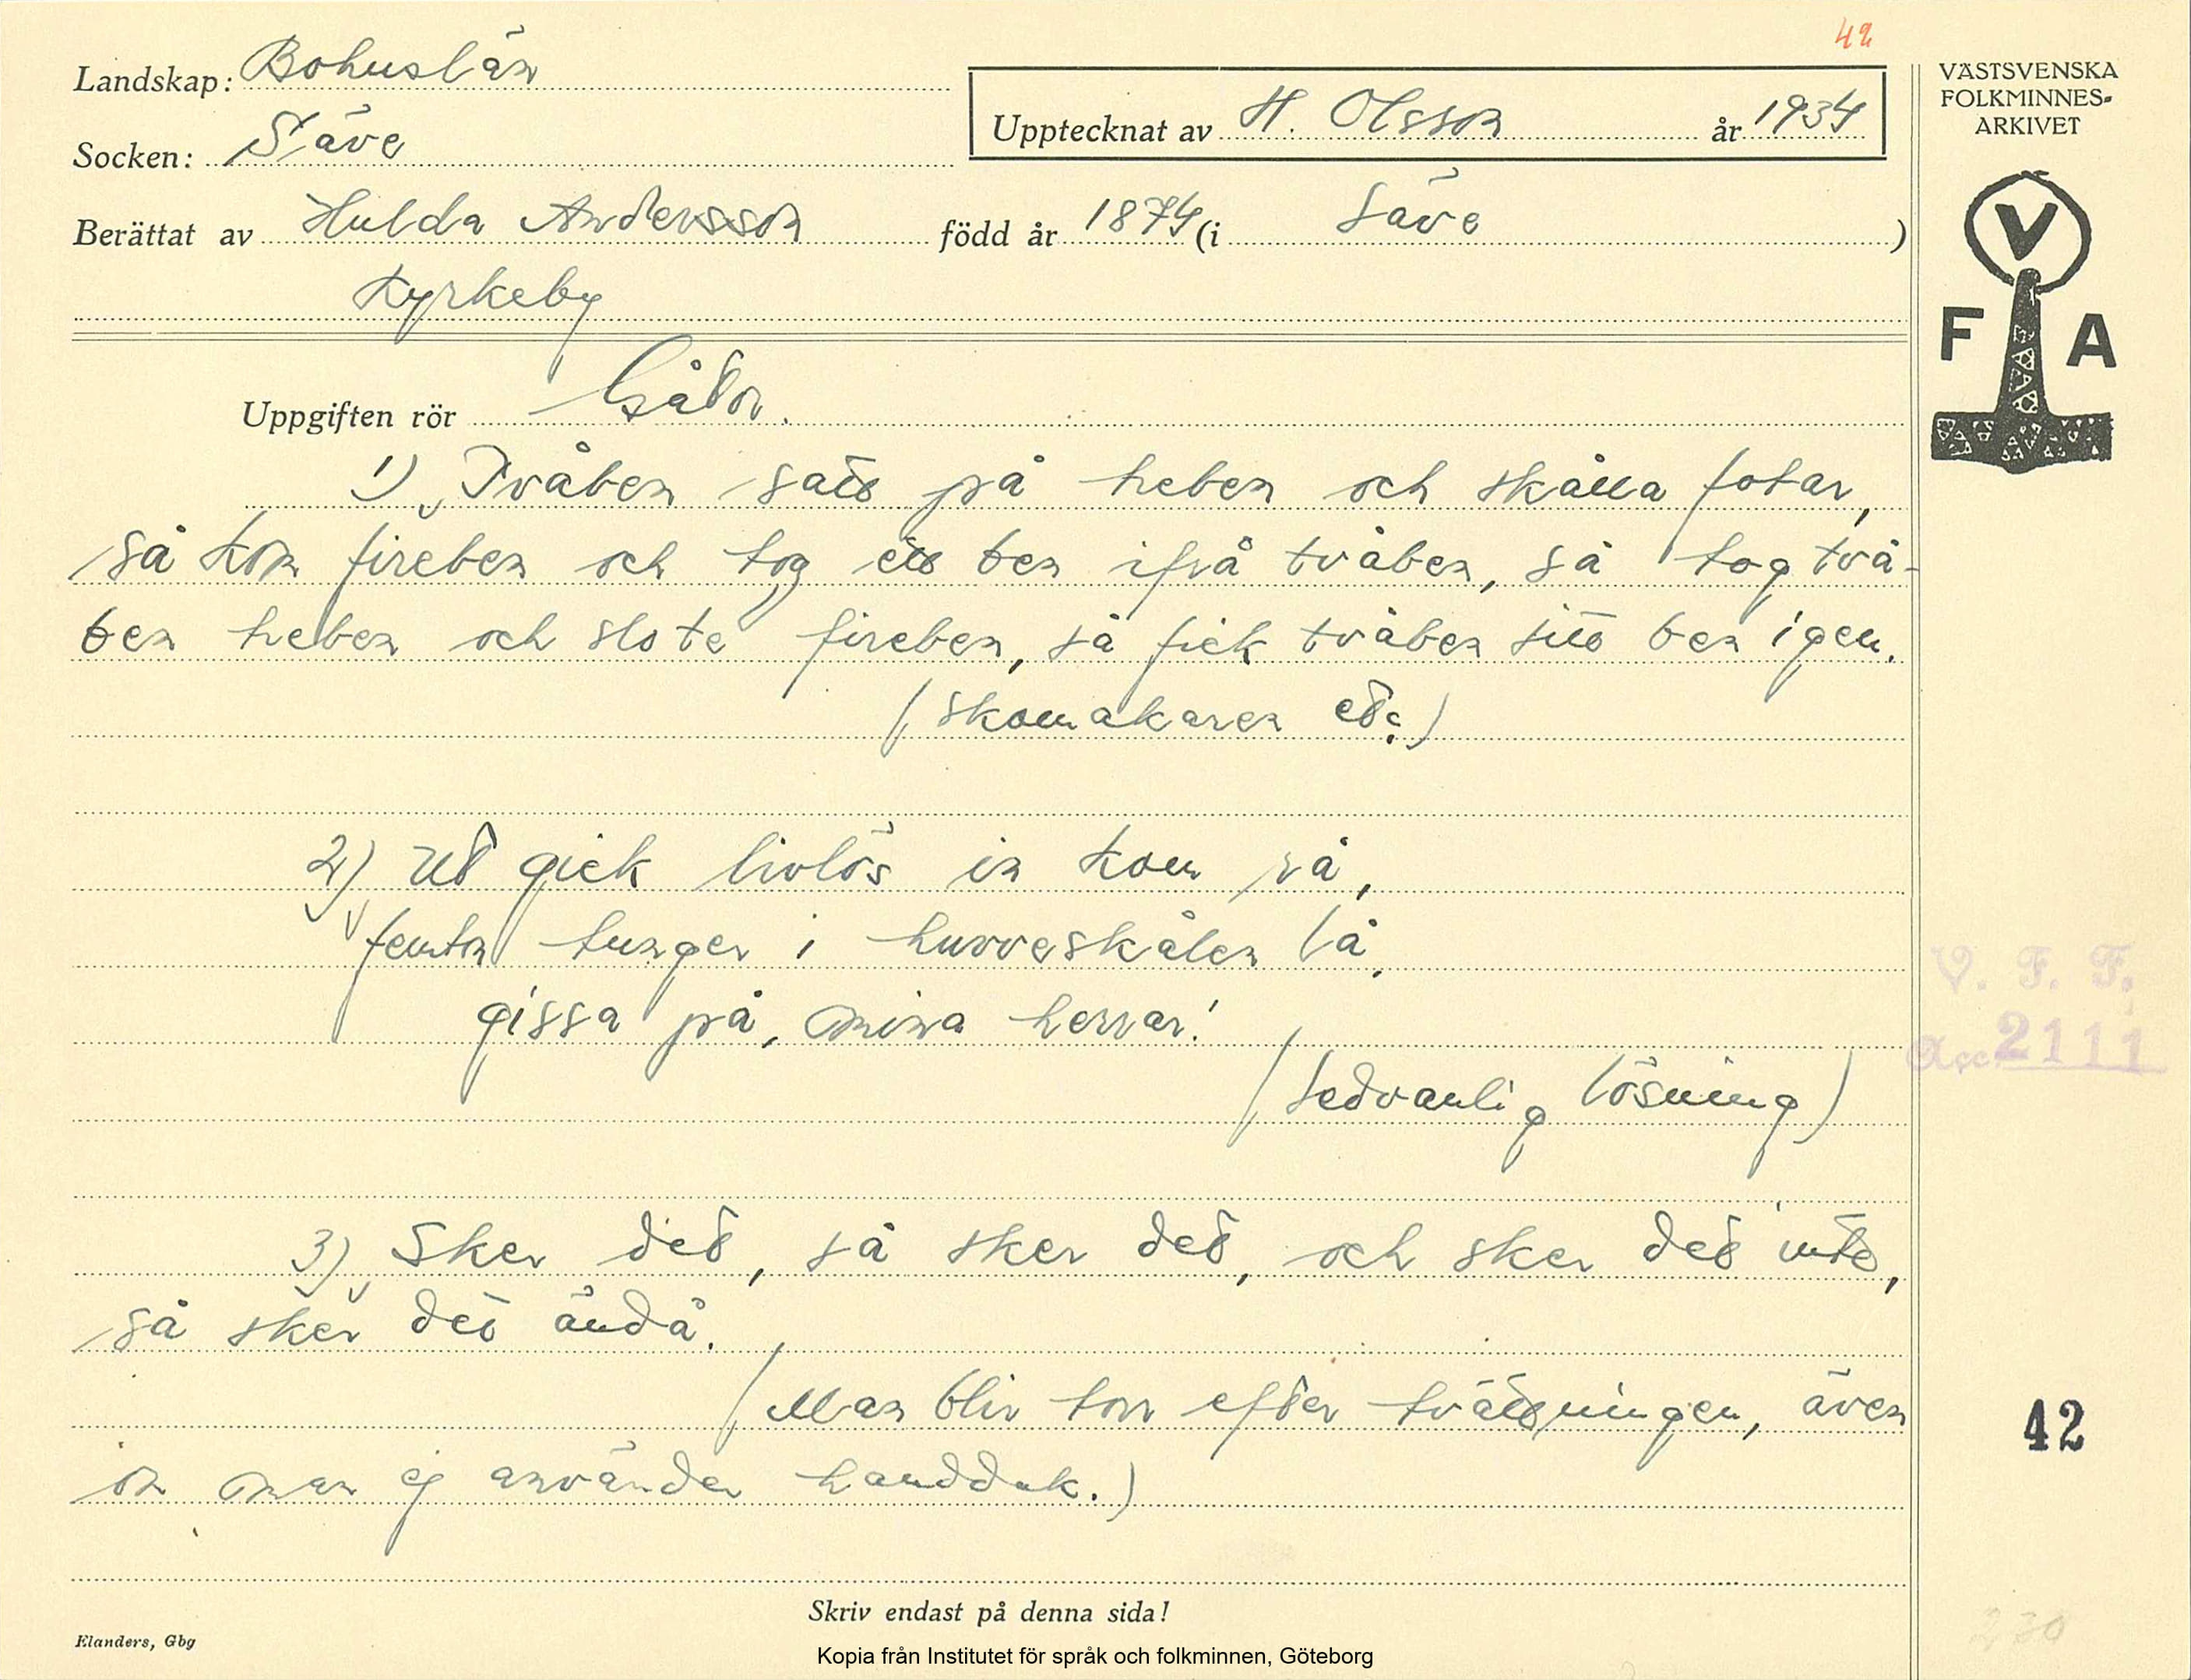 42
Landskap: Bohuslän
VÄSTSVENSKA
FOLKMINNES-
ARKIVET
Upptecknat av H. Olsson år 1934
Socken: Säve
Berättat av Hulda Andersson född år 1874 (i Säve )
Kyrkeby
V
F A
Uppgiften rör Gåtor.
1) Tvåben satt på treben och skålla fotar,
så kom fireben och tog ett ben ifrå tvåben, så tog två-
ben treben och slo te fireben, så fick tvåben sitt ben igen.
(skomakaren etc.)
2) Ut gick livlös in kom rå,
femton tunger i huvveskålen lå,
gissa på, mina herrar!
(sedvanlig lösning)
V. F. F.
Acc 2111
3) Sker det, så sker det, och sker det inte,
så sker det ändå.
(Man blir torr efter tvättningen, även
om man ej använder handduk.)
42
Skriv endast på denna sida!
Elanders, Gbg
230
Kopia från Institutet för språk och folkminnen, Göteborg